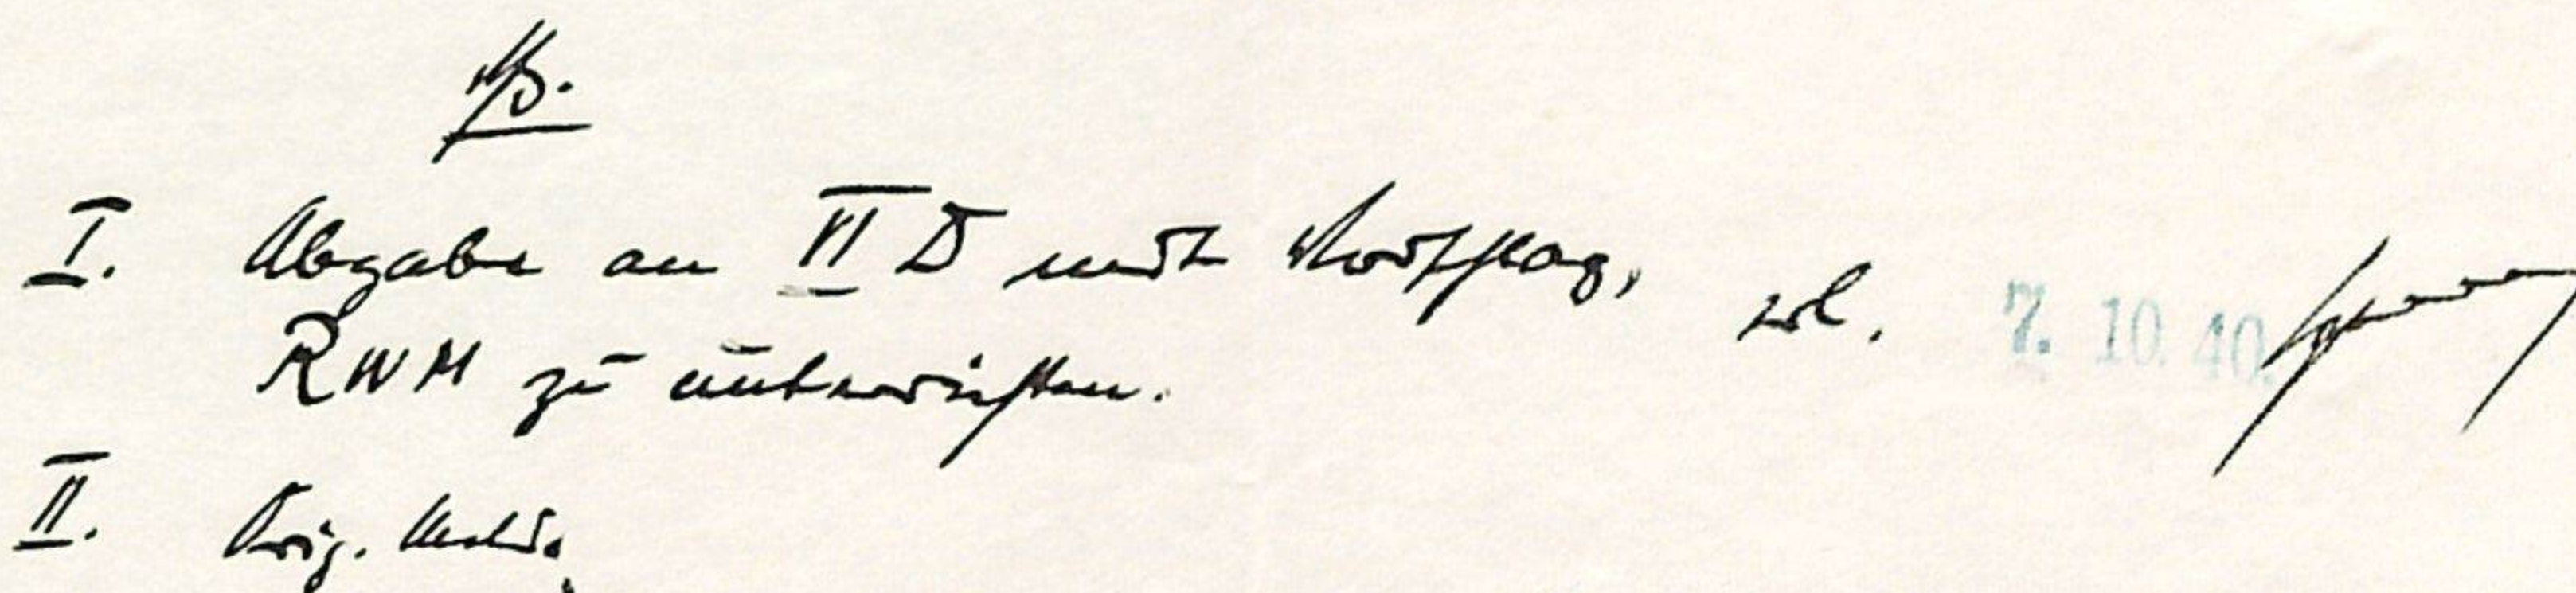 Vfg.
I. Abgabe an VI D mit Vorschlag,
RWM zu unterrichten. erl. 7. 10. 40.
II. Orig.